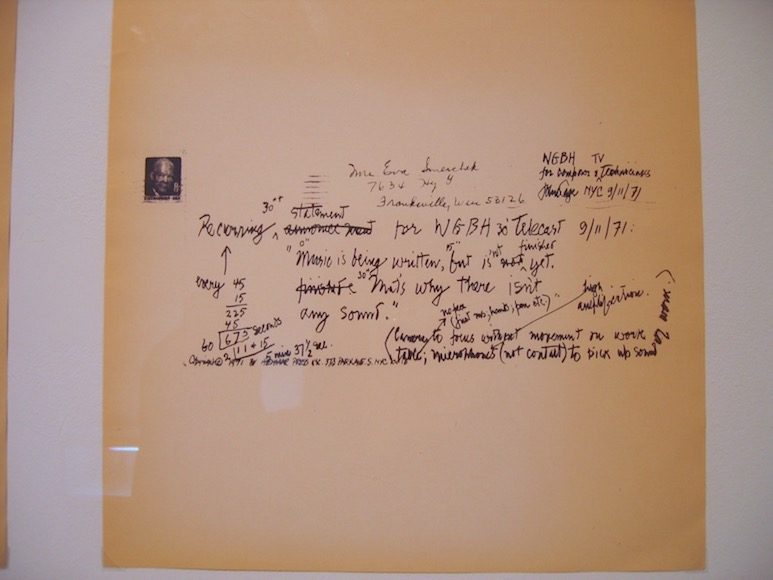 Mrs Eva Smerchek
7634 Hy Y
Franksville, Wisc 53126
WGBH TV
for composer & technicians
John Cage NYC 9/11/71
30"
statement
Recurring announcement for WGBH 30' Telecast 9/11/71:
0" 15" finished
"Music is being written, but is not yet.
finished 30" That's why there isn't
any sound."
every 45
15
225
45
60 675 seconds
11 + 15
5 mins 37½ sec.
no face
(just ms, hands, pen etc.)
high amplification.
(Camera to focus without movement on work
table; microphones (not contact) to pick up sound
Copyright © 1971 by Henmar Press Inc. 373 Park Ave. S. NYC